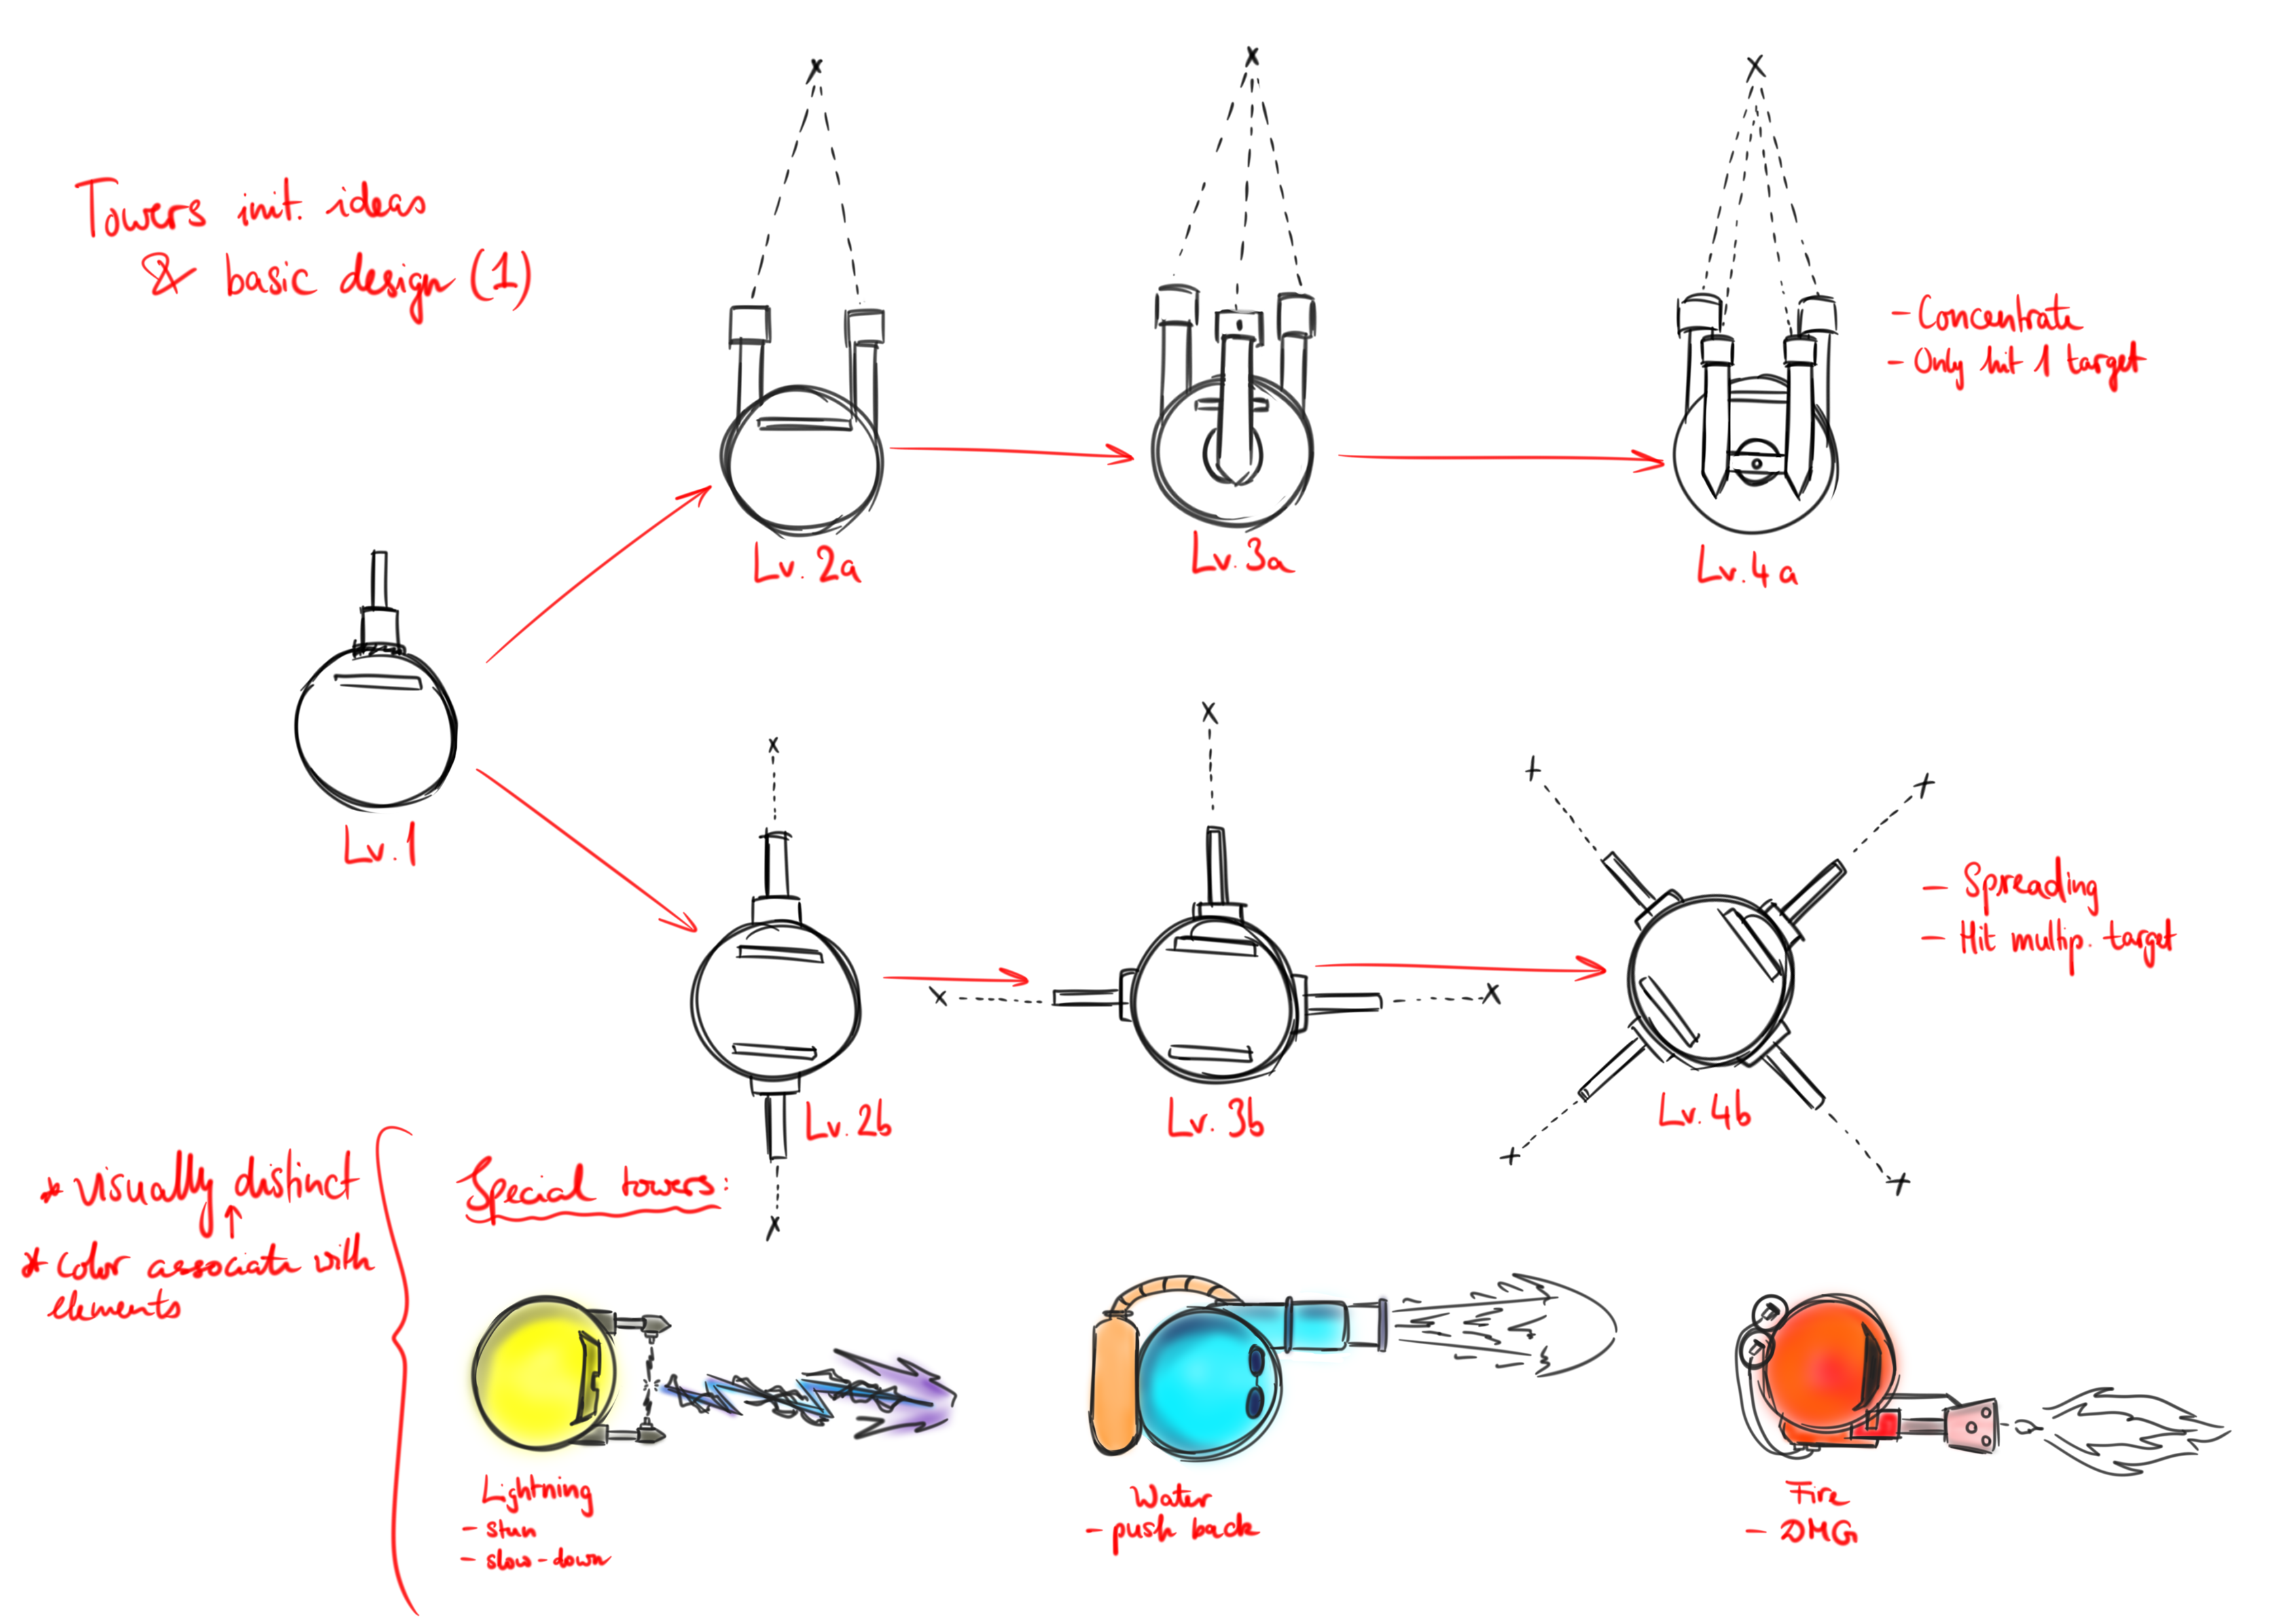 Towers init. ideas
& basic design (1)
- Concentrate
- Only hit 1 target
Lv. 2a
Lv. 3a
Lv. 4a
Lv. 1
- Spreading
- Hit multip. target
Lv. 2b
Lv. 3b
Lv. 4b
* visually distinct
* color associate with
elements
Special towers:
Lightning
- stun
- slow-down
Water
- push back
Fire
- DMG